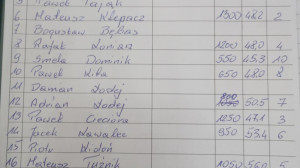 5 Paweł Pająk
6 Mateusz Klepacz 1300 48.2 2
7 Bogusław Dębos
8 Rafał 1200 48.0 4
9 Smoła Dominik 550 45.3 10
10 Paweł Kita 650 48.0 8
11 Damian Łodej
12 Adrian Łodej 50.5 7
13 Paweł Cieciora 1050 47.1 3
14 Jacek Kowalec 950 53.4 6
15 Piotr Widoń
16 Mateusz Tuśnik 56.0 5